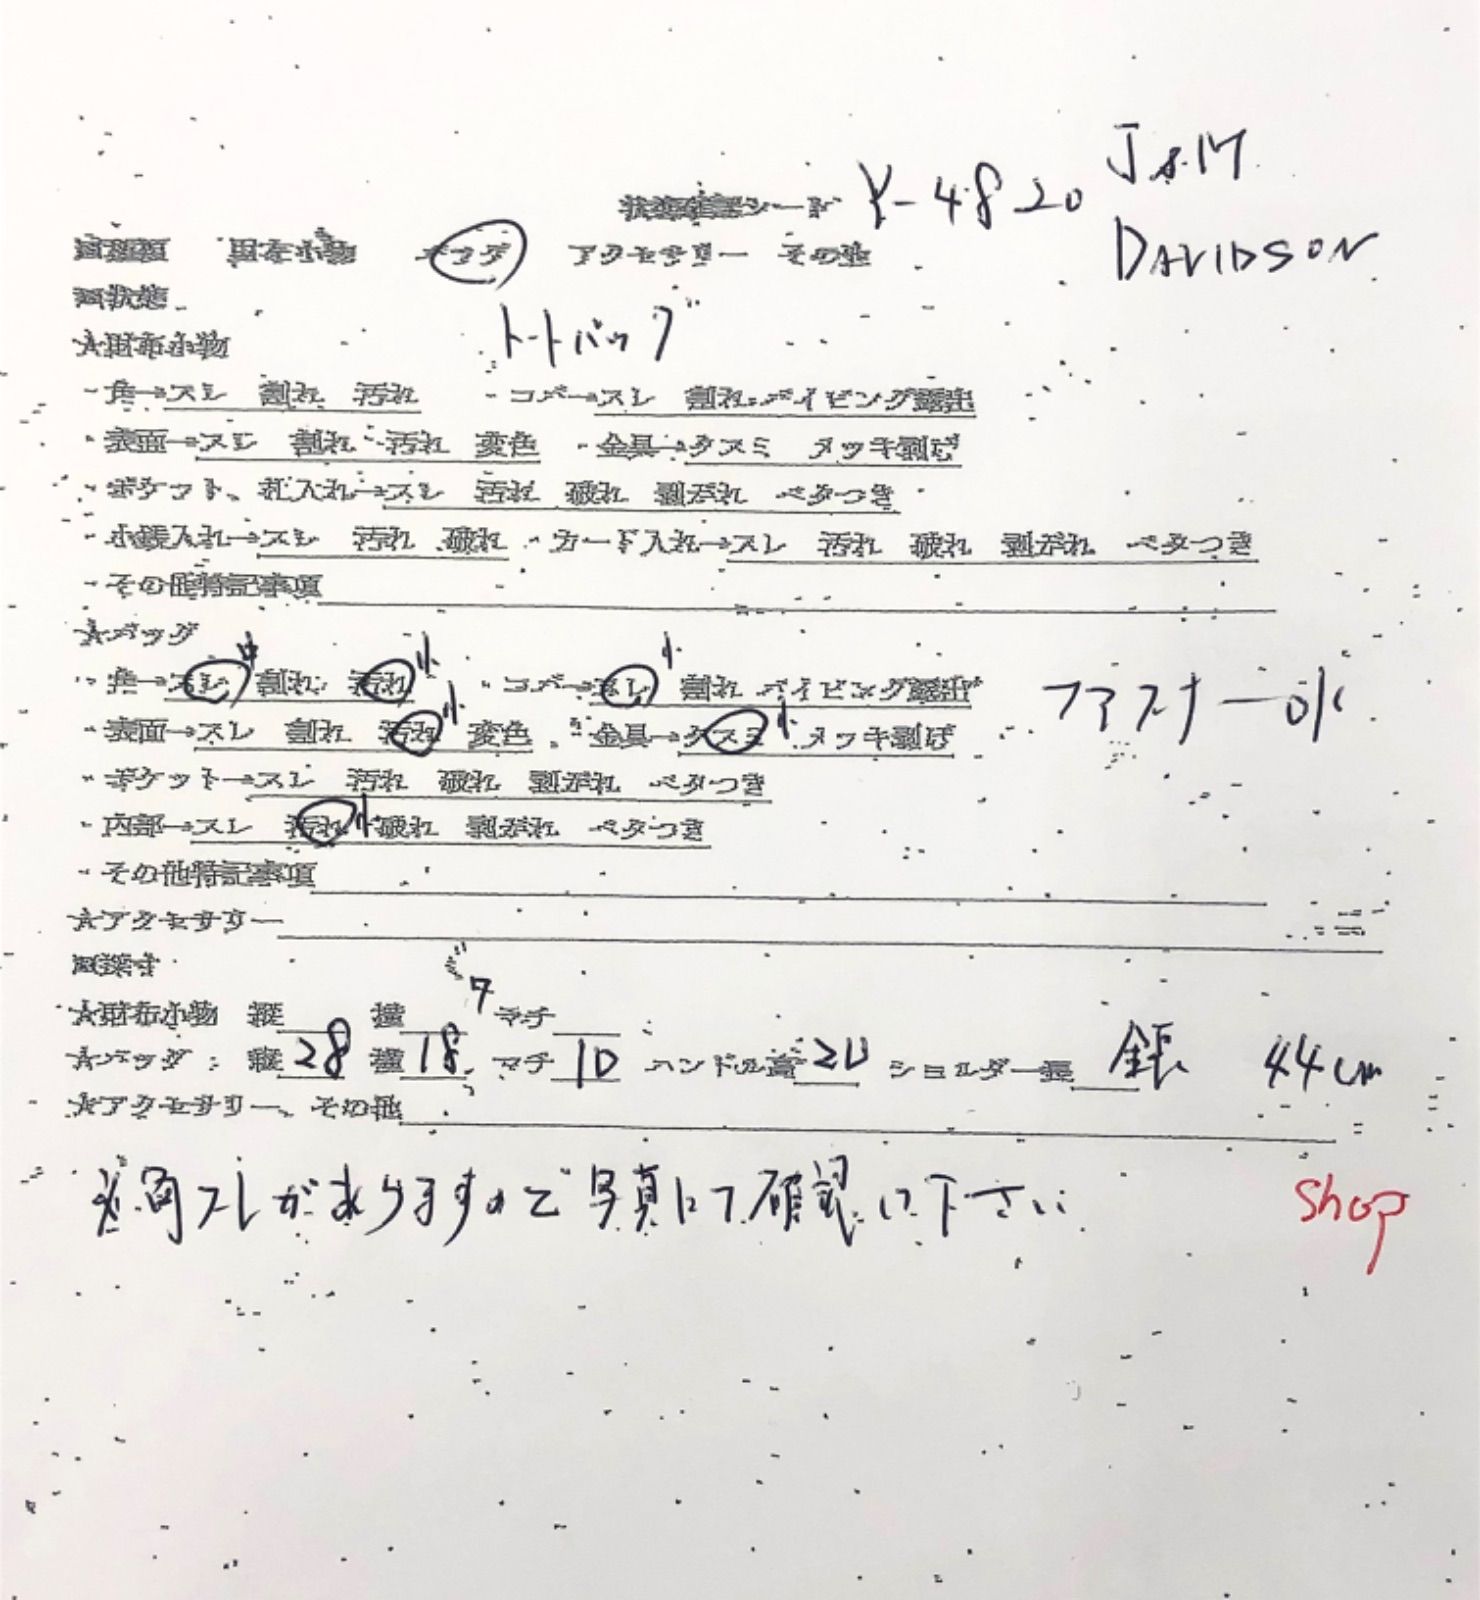 状態確認シート Y-4820 J&M
DAVIDSON
財布小物 バッグ アクセサリー その他
■状態
トートバッグ
★財布小物
・角→スレ 割れ 汚れ ・コバ→スレ 割れ パイピング露出
・表面→スレ 割れ 汚れ 変色 ・金具→クスミ メッキ剥げ
・ポケット、札入れ→スレ 汚れ 破れ 剥がれ ベタつき
・小銭入れ→スレ 汚れ 破れ ・カード入れ→スレ 汚れ 破れ 剥がれ ベタつき
・その他特記事項
★バッグ
・角→スレ 中 割れ 汚れ 小 ・コバ→スレ 小 割れ パイピング露出 ファスナーOK
・表面→スレ 割れ 汚れ 小 変色 ・金具→クスミ 小 メッキ剥げ
・ポケット→スレ 汚れ 破れ 剥がれ ベタつき
・内部→スレ 汚れ 小 破れ 剥がれ ベタつき
・その他特記事項
★アクセサリー
■採寸
★財布小物 縦 横 マチ
★バッグ 縦 28 横 18 マチ 10 ハンドル高 20 ショルダー長 全長 44cm
★アクセサリー、その他
※角スレがありますので写真にて確認して下さい
shop